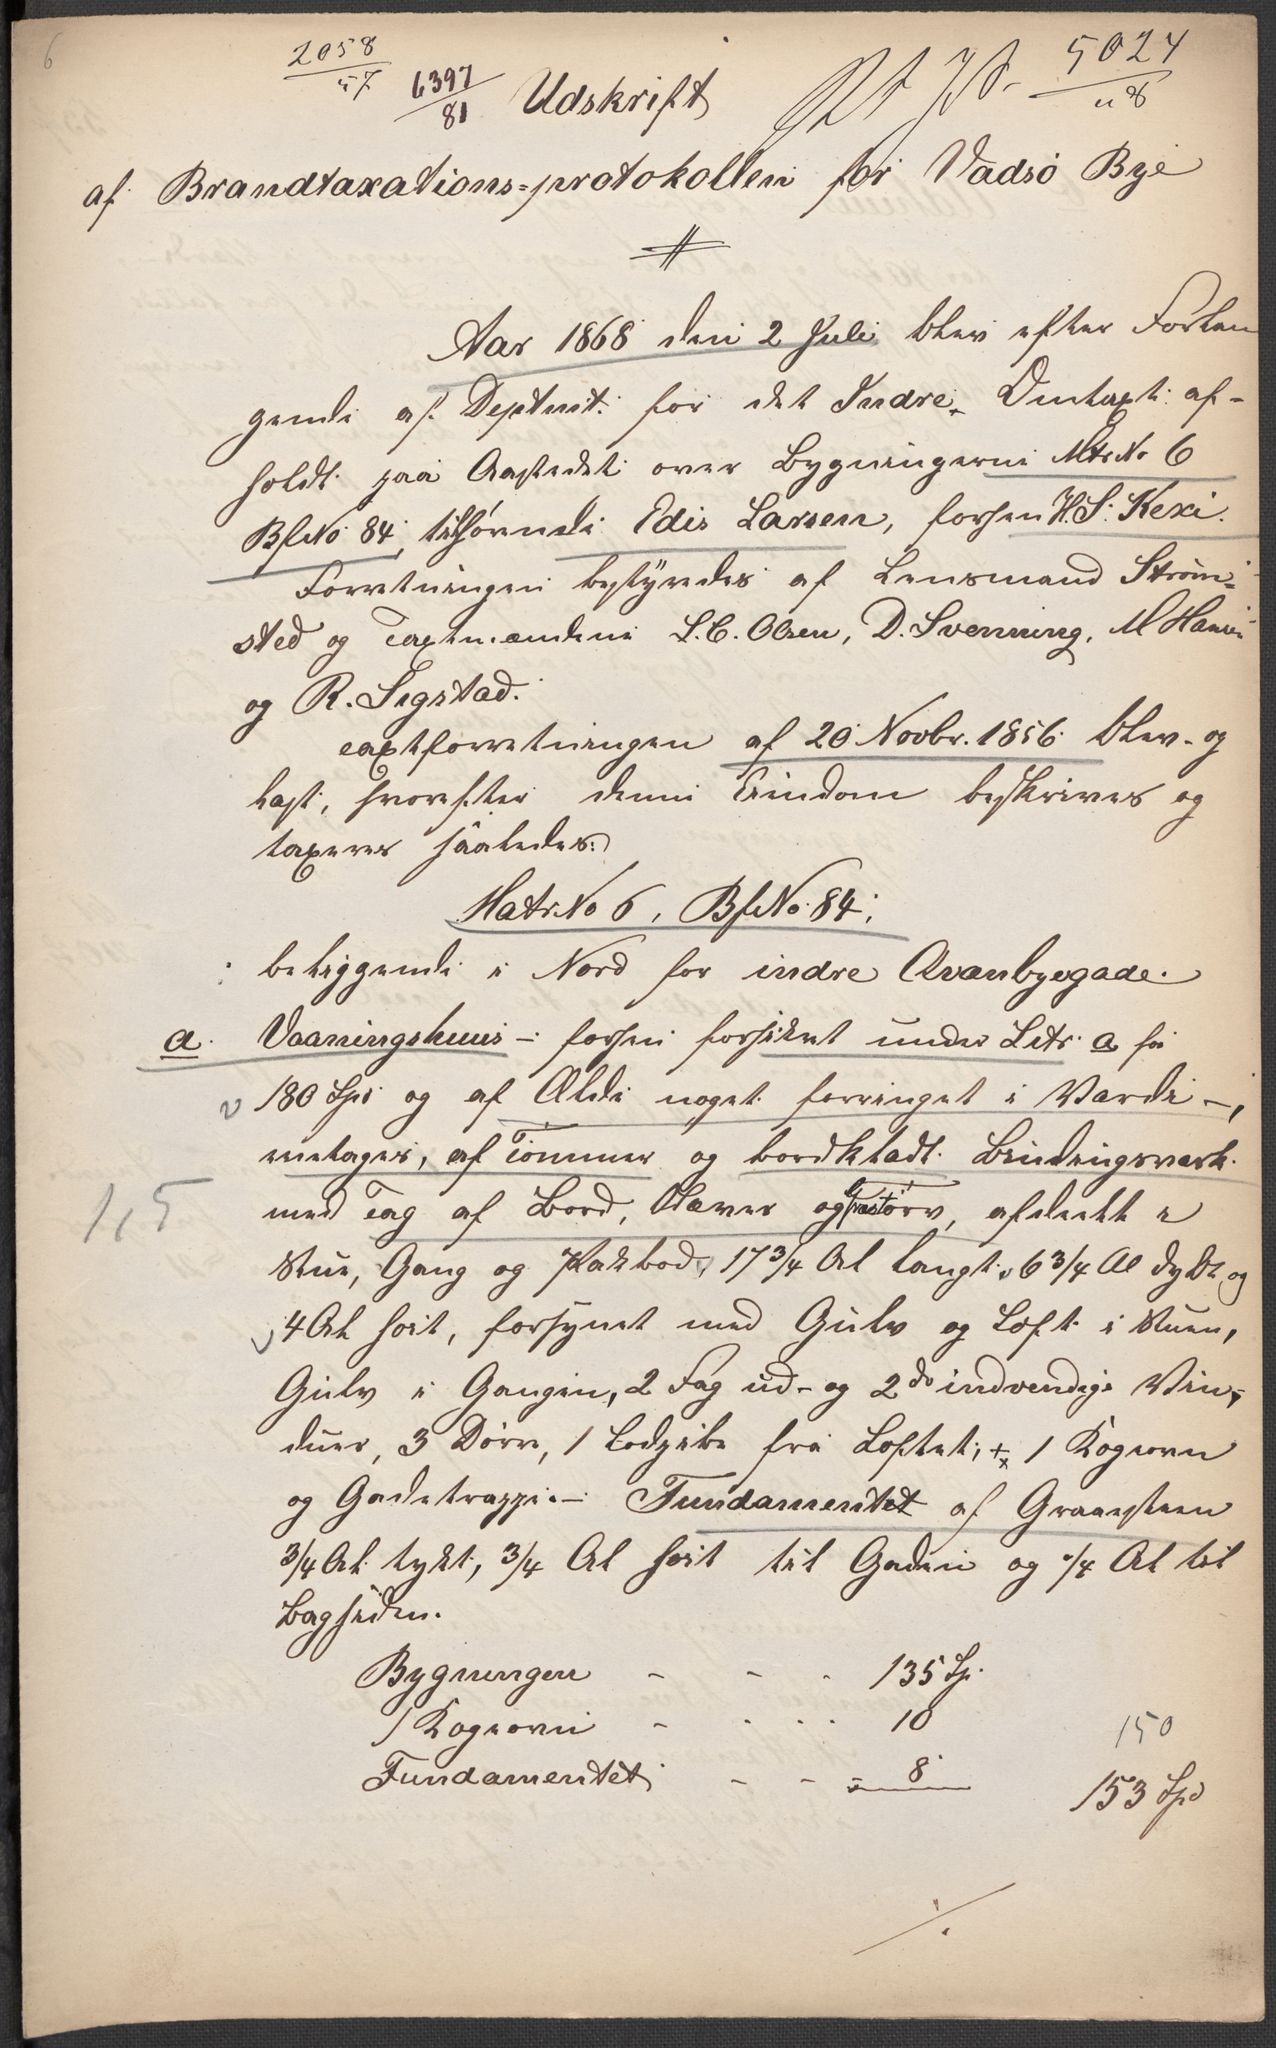 6
2058/57 6397/81 Udskrift 5024/
af Brandtaxations=protokollen for Vadsö Bye
Aar 1868 den 2 Juli blev efter Forlan
gende af Deptmt. for det Indre, Omtaxt af-
holdt paa Aastedet over Bygningerne Mtr No 6
Bf No 84, tilhørende Edis Larsen, forhen H. S. Kexi.
Forretningen bestyredes af Lensmand Ström=
sted og Taxtmændene L. C. Olsen, D. Svenning, M Hansen
og R. Sigstad.
Taxtforretningen af 20 Novbr. 1856 blev og
læst, hvorefter denne Eiendom beskrives og
taxeres saaledes:
Matr No 6, Bf No 84,
beliggende i Nord for indre Qvænbyegade.
a. Vaaningshuus – forhen forsikret under Litr. a for
180 Spd og af Ælde noget forringet i Værdi –,
antages, af Tömmer og bordklædt Bindingsværk
med Tag af Bord, Næver og Græstörv, afdeelt i
1,5
Stue, Gang og Kakbod, 17 3/4 Al langt, 6 3/4 Al dybt og
4 Al høit, forsynet med Gulv og Loft i Stuen,
Gulv i Gangen, 2 Fag ud- og 2 do indvendige Vin=
duer, 3 Dörre, 1 Lodpibe fra Loftet, 1 Kogeovn
og Gadetrappe. – Fundamentet af Graasteen
3/4 Al tykt, 3/4 Al høit til Gaden og /4 Al til
Bagsiden.
Bygningen - - - 135 Sp.
1 Kogeovn - - - 10
150
Fundamentet - - - 8
153 Spd
/.